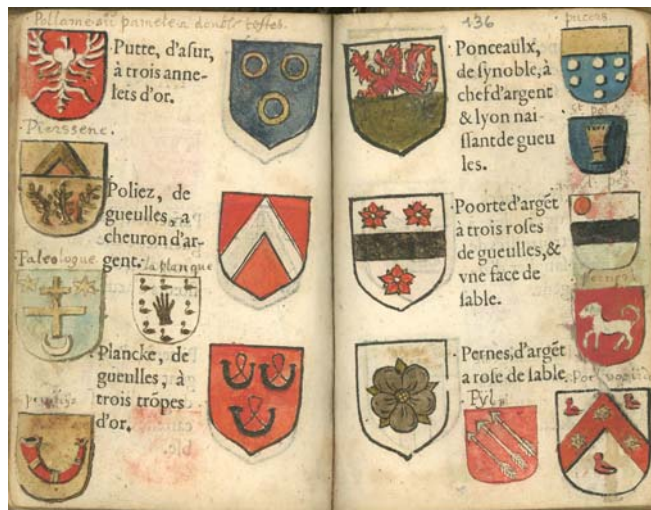 Pollame
pamele a double testes.
Putte, d'aſur,
à trois anne-
lets d'or.
Pierssene.
Poliez, de
gueulles, a
cheuron d'ar-
gent.
Paleologue
la planque
Plancke, de
gueulles, à
trois trõpes
d'or.
136
Ponceaulx,
de ſynoble, à
chef d'argent
& lyon naiſ-
ſant de gueu
les.
Poorte d'argẽt
à trois roſes
de gueulles, &
vne face de
ſable.
Pernes, d'argẽt
a roſe de ſable
Pyl